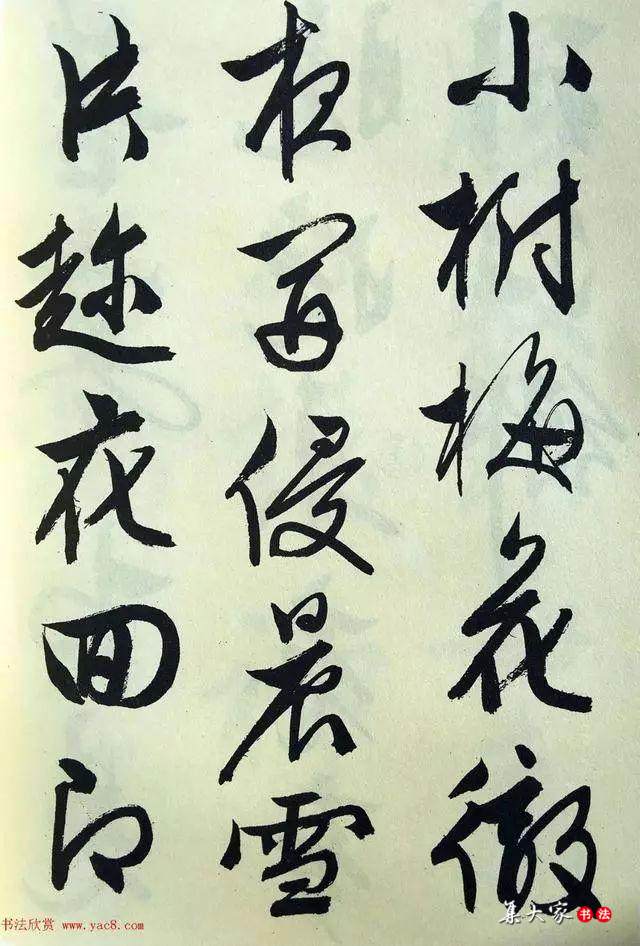 小樹梅花徹
夜開侵晨雪
片趂花囬即
书法欣赏 www.yac8.com
集大家书法